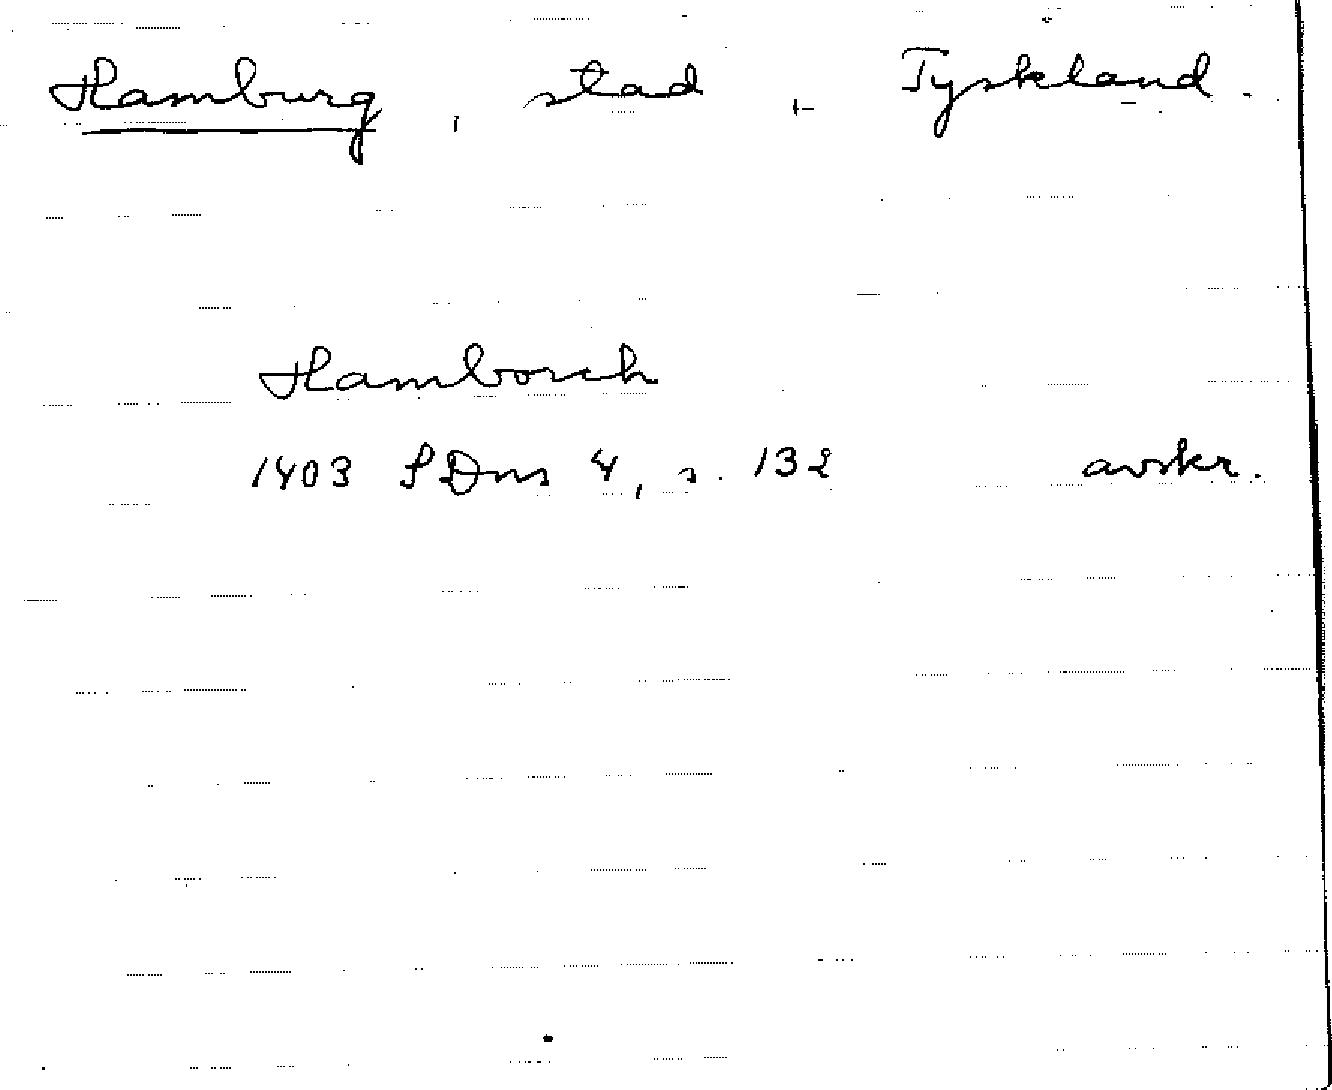 Hamburg, stad i Tyskland.
Hamborch
1403 SDns 4, s. 132 avskr.